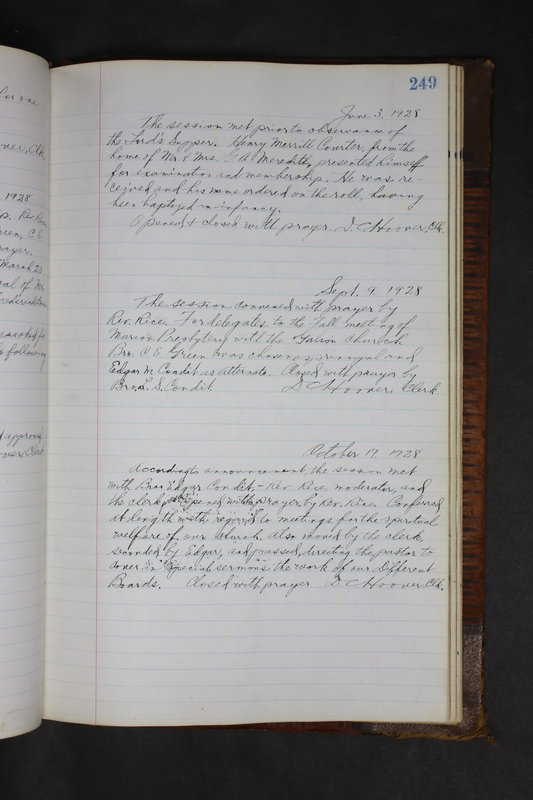 for one
over, Clk.
1928.
p. Rev. Rice
Green, C E
rayer.
March 20
of Mr
Fredericktown
following
approved
over, Clerk
249
June 3, 1928
The session met prior to observance of
the Lord's Supper. Henry Merrill Courter, from the
home of Mr. & Mrs. G A Meredith, presented himself
for examination and membership. He was re-
ceived, and his name ordered on the roll, having
been baptized in infancy.
Opened & closed with prayer. D. C Hoover, Clk.
Sept. 9, 1928
The session convened with prayer by
Rev. Rice. For delegates to the Fall meeting of
Marion Presbytery with the Galion Church
Bro. C E Green was chosen as principal and
Edgar M Condit as alternate. Closed with prayer by
Bro. S. Condit. D C Hoover, Clerk
October 17, 1928
According to announcement, the session met
with Bro. Edgar Condit, - Rev. Rice, moderator, and
the clerk. Opened with prayer by Rev. Rice. Conferred
at length with regard to meetings for the spiritual
welfare of our church. Also moved by the clerk,
seconded by Edgar, and passed, directing the pastor to
cover in special sermons the work of our Different
Boards. Closed with prayer D. C Hoover, Clk.